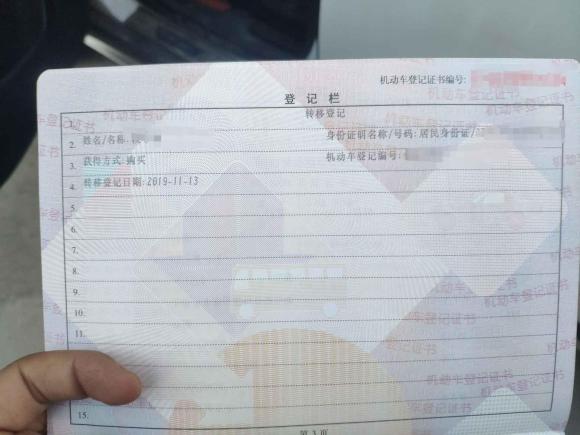 机动车登记证书编号:
登记栏
1. 转移登记
2. 姓名/名称: 身份证明名称/号码: 居民身份证/
3. 获得方式: 购买 机动车登记编号:
4. 转移登记日期: 2019-11-13
5.
6.
7.
8.
9.
10.
11.
15.
第 3 页
机动车登记证书